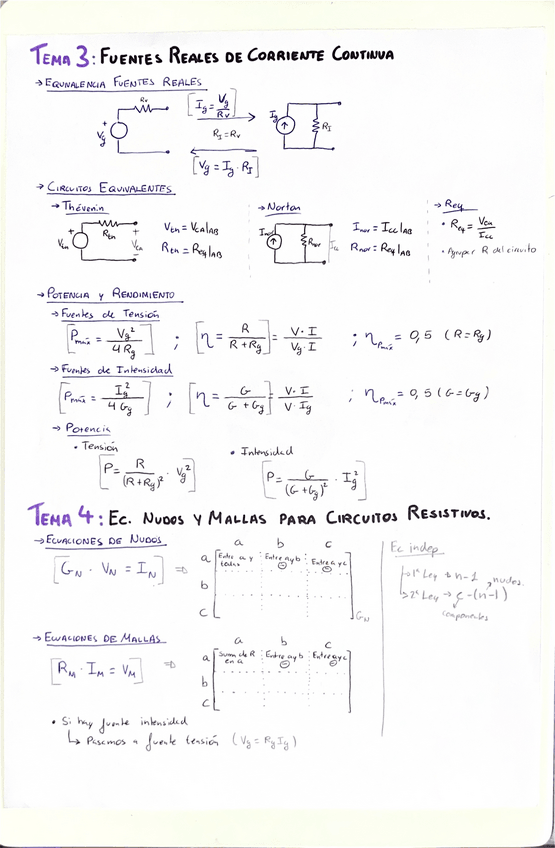 TEMA 3: FUENTES REALES DE CORRIENTE CONTINUA
→ EQUIVALENCIA FUENTES REALES
Rv
+
Vg
[Ig = Vg/Rv]
RI = Rv
[Vg = Ig · RI]
Ig
RI
→ CIRCUITOS EQUIVALENTES
→ Thévenin
Rth
+
Vth
+
Vca
-
Vth = VCA|AB
Rth = Req|AB
→ Norton
Inor
Rnor
Icc
Inor = Icc|AB
Rnor = Req|AB
→ Req
• Req = Vca/Icc
• Agrupar R del circuito
→ POTENCIA Y RENDIMIENTO
→ Fuentes de Tensión
[Pmáx = Vg²/4Rg] ; [η = R/(R+Rg)] = V·I/Vg·I ; ηPmáx = 0,5 (R=Rg)
→ Fuentes de Intensidad
[Pmáx = Ig²/4Gg] ; [η = G/(G+Gg)] = V·I/V·Ig ; ηPmáx = 0,5 (G=Gg)
→ Potencia
• Tensión
[P = R/(R+Rg)² · Vg²]
• Intensidad
[P = G/(G+Gg)² · Ig²]
TEMA 4: EC. NUDOS Y MALLAS PARA CIRCUITOS RESISTIVOS.
→ ECUACIONES DE NUDOS
[GN · VN = IN] ⇒
a b c
a Entre a y todos Entre a y b (-) Entre a y c (-)
b
c
GN
Ec indep
→ 1ª Ley → n-1
nudos
→ 2ª Ley → c-(n-1)
componentes
→ ECUACIONES DE MALLAS
[RM · IM = VM] ⇒
a b c
a Suma de R en a Entre a y b (-) Entre a y c (-)
b
c
• Si hay fuente intensidad
↳ Pasamos a fuente tensión (Vg = RgIg)